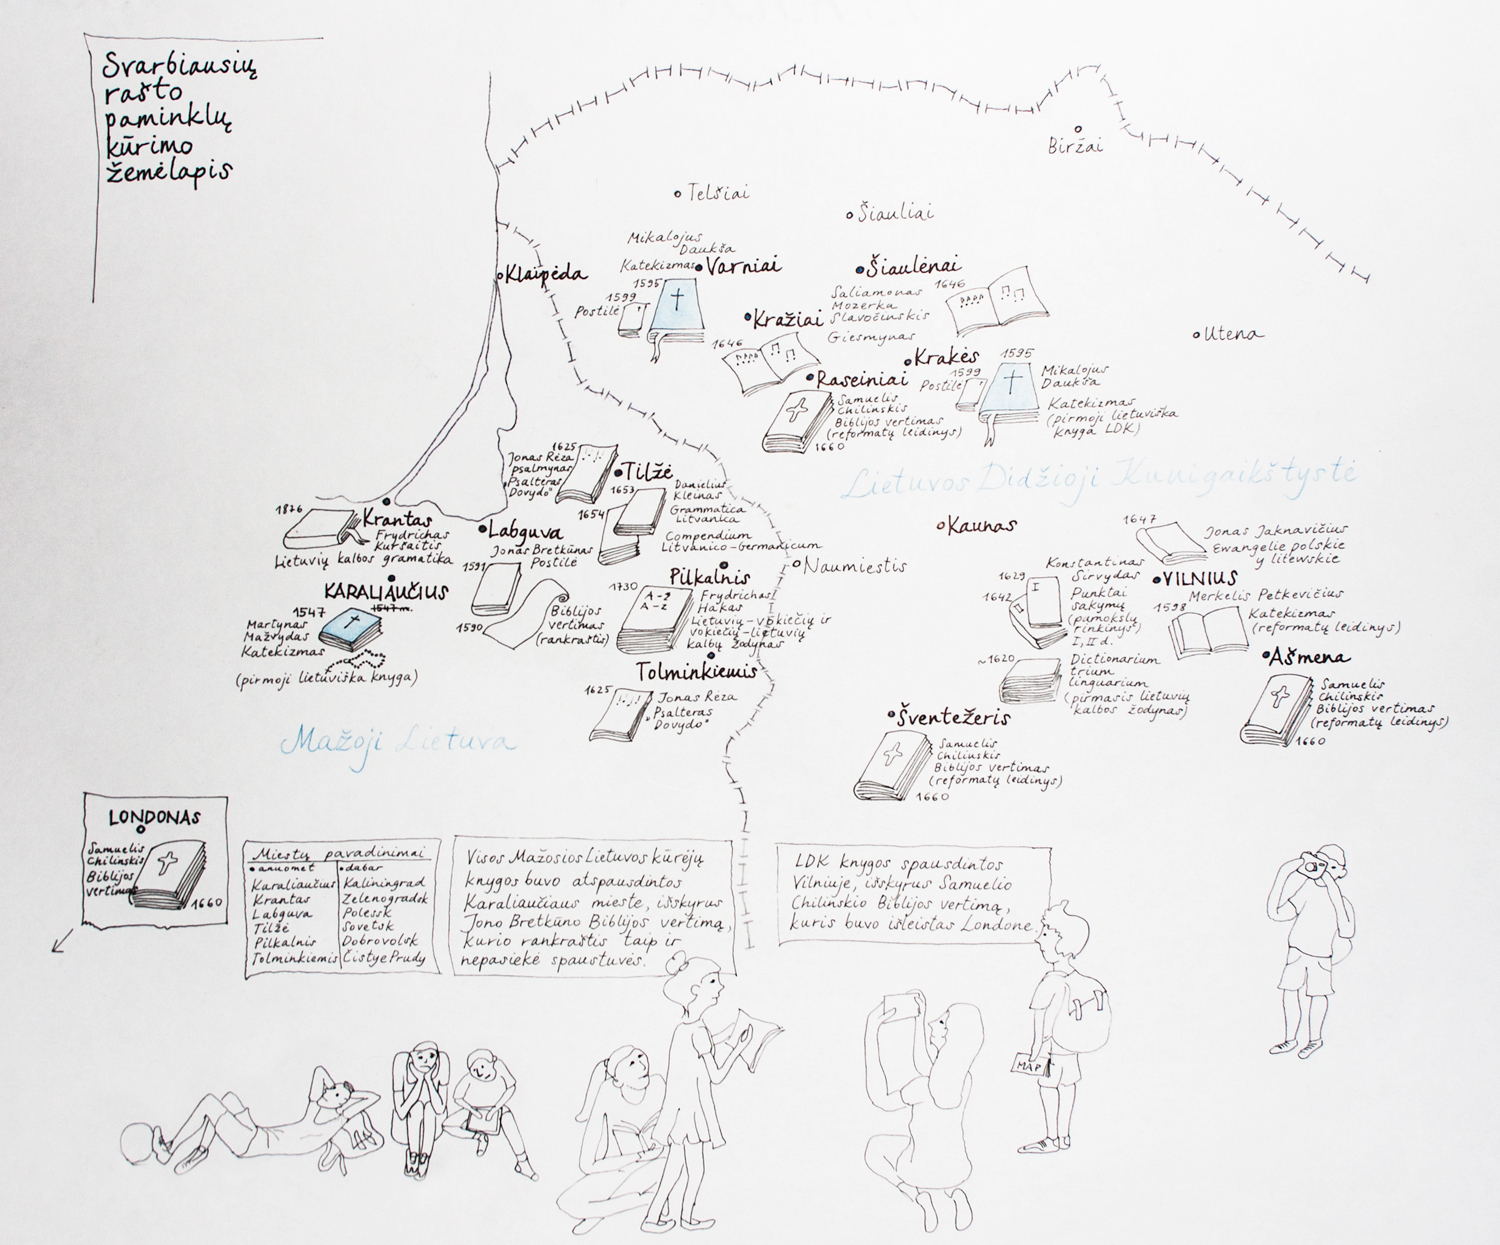 Svarbiausių
rašto
paminklų
kūrimo
žemėlapis
Biržai
Telšiai
Šiauliai
Klaipėda
Mikalojus
Daukša
Katekizmas
Varniai
1595
1599
Postilė
Šiaulėnai
1646
Saliamonas
Mozerka
Slavočinskis
Giesmynas
Kražiai
1646
Utena
Krakės
1595
1599
Postilė
Mikalojus
Daukša
Katekizmas
(pirmoji lietuviška
knyga LDK)
Raseiniai
Samuelis
Chilinskis
Biblijos vertimas
(reformatų leidinys)
1660
Lietuvos Didžioji Kunigaikštystė
1625
Jonas Rėza
psalmynas
"Psalteras
Dovydo"
Tilžė
1653
1654
Danielius
Kleinas
Grammatica
Litvanica
Compendium
Litvanico-Germanicum
1876
Krantas
Frydrichas
Kuršaitis
Lietuvių kalbos gramatika
Labguva
Jonas Bretkūnas
Postilė
1591
1590
Biblijos
vertimas
(rankraštis)
KARALIAUČIUS
1547 m.
1547
Martynas
Mažvydas
Katekizmas
(pirmoji lietuviška knyga)
Pilkalnis
1730
A-Z
A-Z
Frydrichas
Hakas
Lietuvių-vokiečių ir
vokiečių-lietuvių
kalbų žodynas
Naumiestis
Kaunas
Tolminkiemis
1625
Jonas Rėza
"Psalteras
Dovydo"
1647
Jonas Jaknavičius
Ewangelie polskie
y litewskie
VILNIUS
Konstantinas
Sirvydas
1629
1642
I
II
Punktai
sakymų
(pamokslų
rinkinys)
I, II d.
~1620
Dictionarium
trium
linguarium
(pirmasis lietuvių
kalbos žodynas)
Merkelis Petkevičius
1598
Katekizmas
(reformatų leidinys)
Ašmena
Samuelis
Chilinskis
Biblijos vertimas
(reformatų leidinys)
1660
Šventežeris
Samuelis
Chilinskis
Biblijos vertimas
(reformatų leidinys)
1660
Mažoji Lietuva
LONDONAS
Samuelis
Chilinskis
Biblijos
vertimas
1660
Miestų pavadinimai
• anuomet • dabar
Karaliaučius Kaliningrad
Krantas Zelenogradsk
Labguva Polessk
Tilžė Sovetsk
Pilkalnis Dobrovolsk
Tolminkiemis Čistye Prudy
Visos Mažosios Lietuvos kūrėjų
knygos buvo atspausdintos
Karaliaučiaus mieste, išskyrus
Jono Bretkūno Biblijos vertimą,
kurio rankraštis taip ir
nepasiekė spaustuvės.
LDK knygos spausdintos
Vilniuje, išskyrus Samuelio
Chilinskio Biblijos vertimą,
kuris buvo išleistas Londone.
MAP